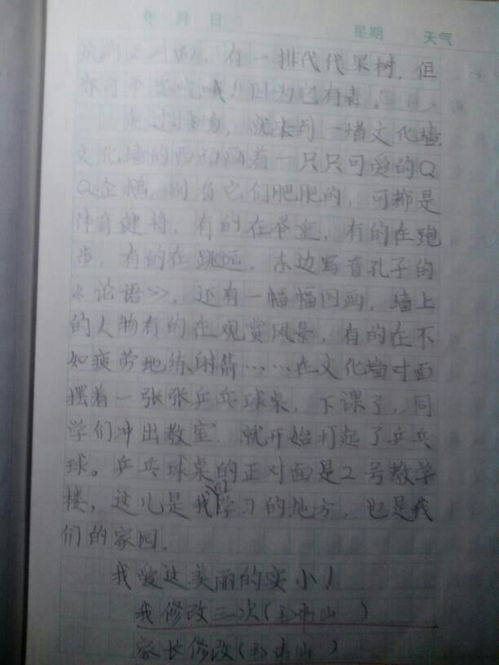 年 月 日 星期 天气
有一排代代果树，但
可不要吃哦！因为它有毒。
一墙文化墙
文化墙的西边画着一只只可爱的Q
Q企鹅，别看它们肥肥的，可都是
体育健将，有的在，有的在跑
步，有的在跳远，东边写着孔子的
《论语》，还有一幅幅图画，墙上
的人物有的在观赏风景，有的在不
知疲劳地练射箭……在文化墙对面
摆着一张张乒乓球桌，下课了，同
学们冲出教室，就开始打起了乒乓
球。乒乓球桌的正对面是2号教学
楼，这儿是我们学习的地方，也是我
们的家园。
我爱这美丽的实小！
我修改三次（山）
家长修改（山）